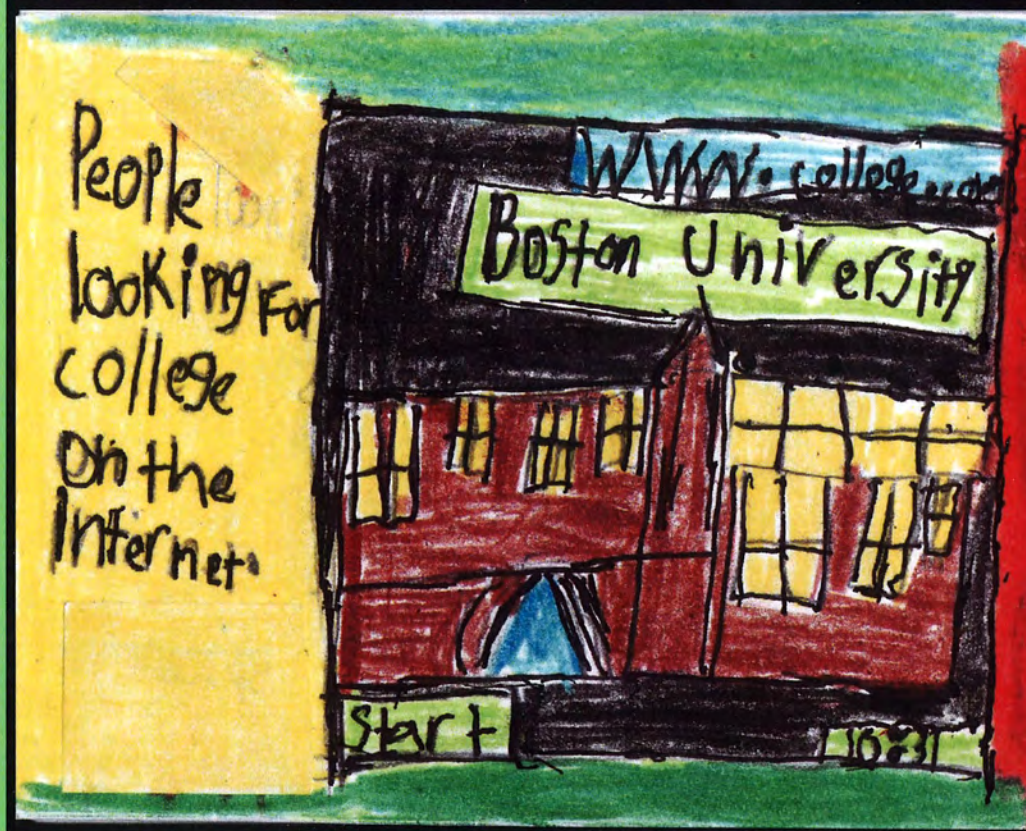 People
looking For
college
on the
Internet.
www.college.com
Boston University
Start
10:31